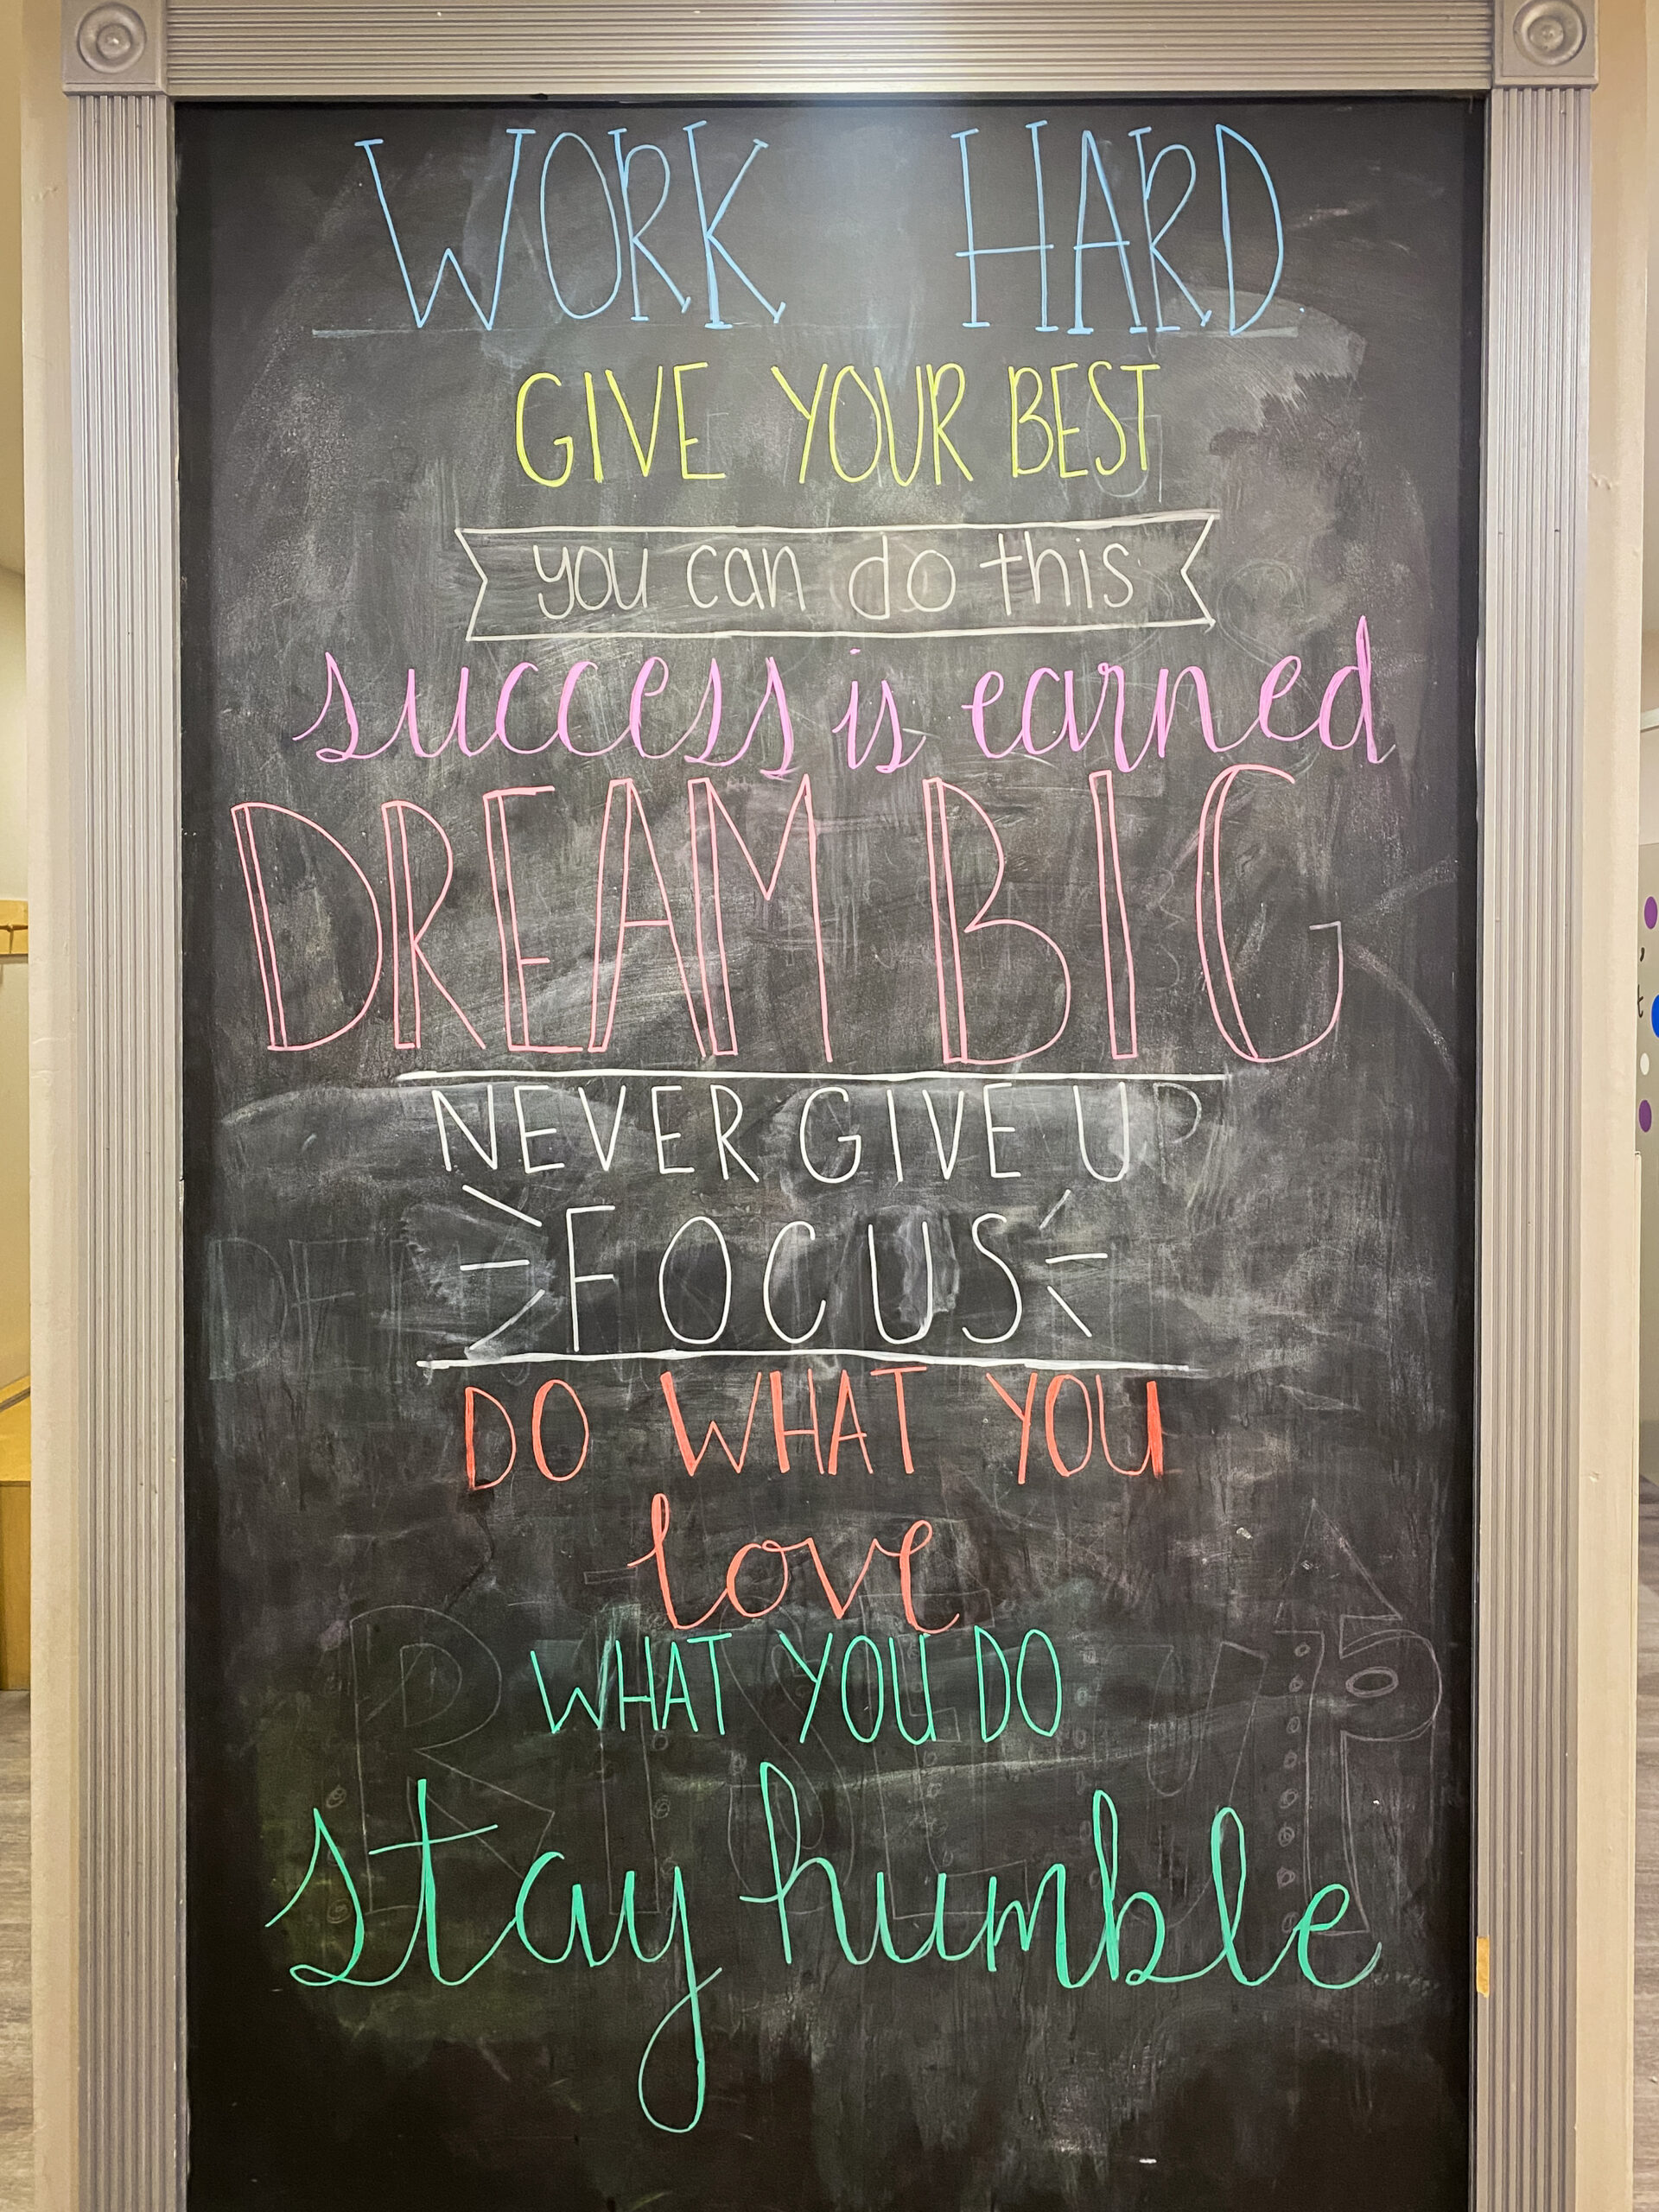 WORK HARD
GIVE YOUR BEST
you can do this
success is earned
DREAM BIG
NEVER GIVE UP
FOCUS
DO WHAT YOU
love
WHAT YOU DO
stay humble